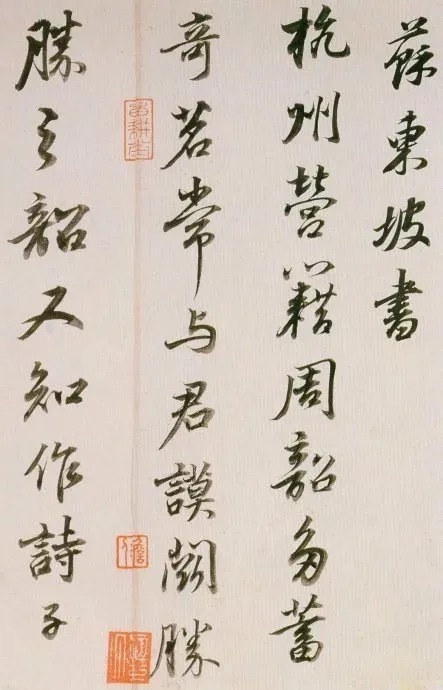 蘇東坡書
杭州營籍周韶多蓄
奇茗常与君謨闘勝
勝之韶又知作詩子